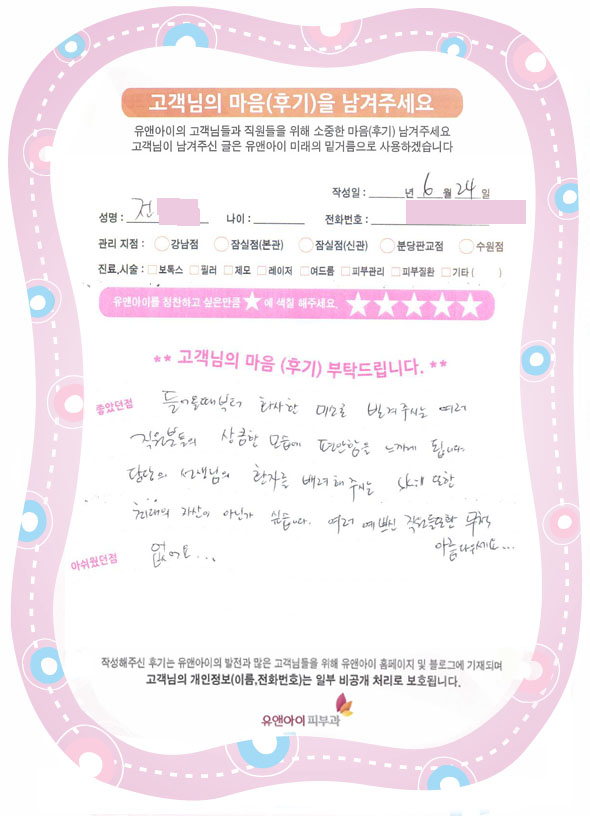 고객님의 마음(후기)을 남겨주세요
유앤아이의 고객님들과 직원들을 위해 소중한 마음(후기) 남겨주세요
고객님이 남겨주신 글은 유앤아이 미래의 밑거름으로 사용하겠습니다
작성일 : 년 6 월 24 일
성명 : 전 나이 : 전화번호 :
관리 지점 : 강남점 잠실점(본관) 잠실점(신관) 분당판교점 수원점
진료,시술 : 보톡스 필러 제모 레이저 여드름 피부관리 피부질환 기타 ( )
유앤아이를 칭찬하고 싶은만큼 ★ 에 색칠 해주세요. ★★★★★
** 고객님의 마음 (후기) 부탁드립니다. **
좋았던점 들어올때부터 화사한 미소로 반겨주시는 여러
직원분들의 상큼한 모습에 편안함을 느끼게 됩니다.
담당의 선생님의 환자를 배려해 주시는 skill 또한
최대의 자산이 아닌가 싶습니다. 여러 예쁘신 직원들또한 무척
아름다우세요...
아쉬웠던점 없어요...
작성해주신 후기는 유앤아이의 발전과 많은 고객님들을 위해 유앤아이 홈페이지 및 블로그에 기재되며
고객님의 개인정보(이름,전화번호)는 일부 비공개 처리로 보호됩니다.
유앤아이피부과